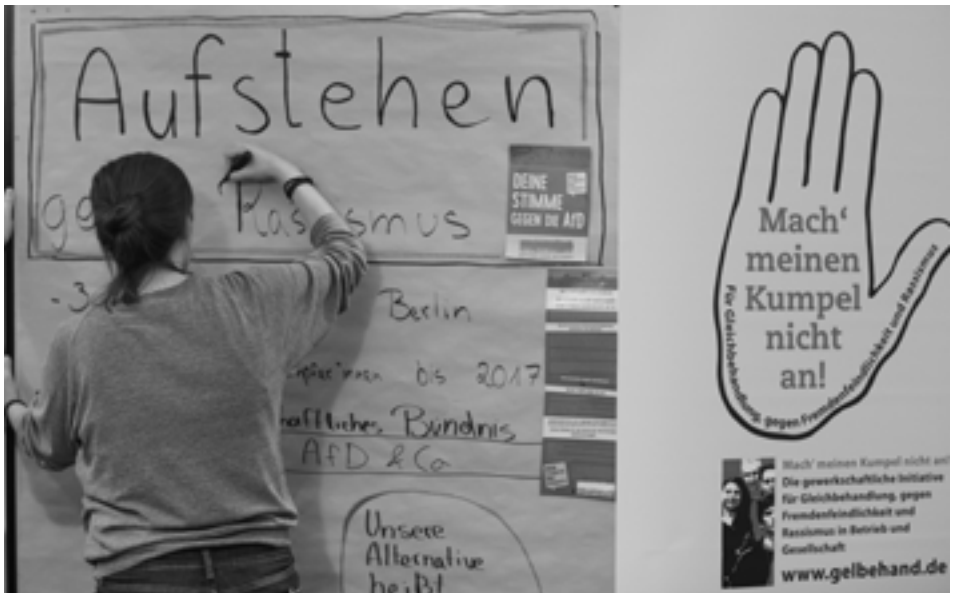 Aufstehen
Rassismus
DEINE
STIMME
GEGEN DIE AfD
Berlin
bis 2017
Bündnis
AfD & Co
Unsere
Alternative
heißt
Mach'
meinen
Kumpel
nicht
an!
Für Gleichbehandlung, gegen Fremdenfeindlichkeit und Rassismus
Mach' meinen Kumpel nicht an!
Die gewerkschaftliche Initiative
für Gleichbehandlung, gegen
Fremdenfeindlichkeit und
Rassismus in Betrieb und
Gesellschaft
www.gelbehand.de